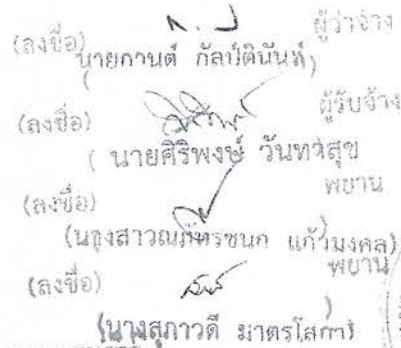 (ลงชื่อ) ผู้ว่าจ้าง
( นายกานต์ กัลป์ตินันท์ )
(ลงชื่อ) ผู้รับจ้าง
( นายศิริพงษ์ วันทาสุข
(ลงชื่อ) พยาน
(นางสาวณภัทรชนก แก้วมงคล)
(ลงชื่อ) พยาน
(นางสุภาวดี มาตรโสภา)